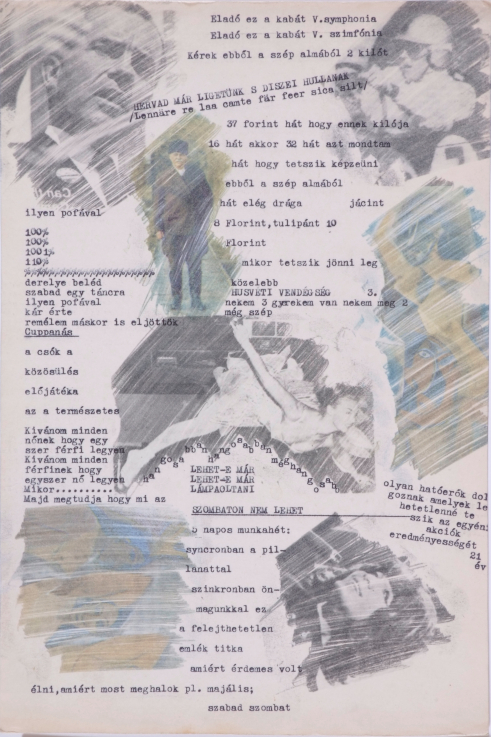 Eladó ez a kabát V.symphonia
Eladó ez a kabát V. szimfónia
Kérek ebből a szép almából 2 kilót
HERVAD MÁR LIGETÜNK S DISZEI HULLANAK
/Lennäre re laa camte fär feer sica silt/
37 forint hát hogy ennek kilója
16 hát akkor 32 hát azt mondtam
hát hogy tetszik képzeüni
ebből a szép almából
hát elég drága jácint
ilyen pofával
8 Florint,tulipánt 10
100%
100%
Florint
100%
110%
mikor tetszik jönni leg
derelye beléd közelebb
szabad egy táncra HUSVÉTI VENDÉGSÉG 3.
ilyen pofával nekem 3 gyerekem van nekem meg 2
kár érte még szép
remélem máskor is eljöttök
Cuppanás
a csók a
közösülés
előjátéka
az a természetes
Kivánom minden
nőnek hogy egy
szer férfi legyen
Kivánom minden
férfinek hogy
egyszer nő legyen
Mikor..........
Majd megtudja hogy mi az
hangosabban hangosabban
LEHET-E MÁR
LEHET-E MÁR
LÁMPAOLTANI
olyan hatóerők dol
goznak amelyek le
hetetlenné te
szik az egyéni
akciók
eredményességét
21
év
SZOMBATON NEM LEHET
5 napos munkahét:
syncronban a pil-
lanattal
szinkronban ön-
magunkkal ez
a felejthetetlen
emlék titka
amiért érdemes volt
élni,amiért most meghalok pl. majális;
szabad szombat